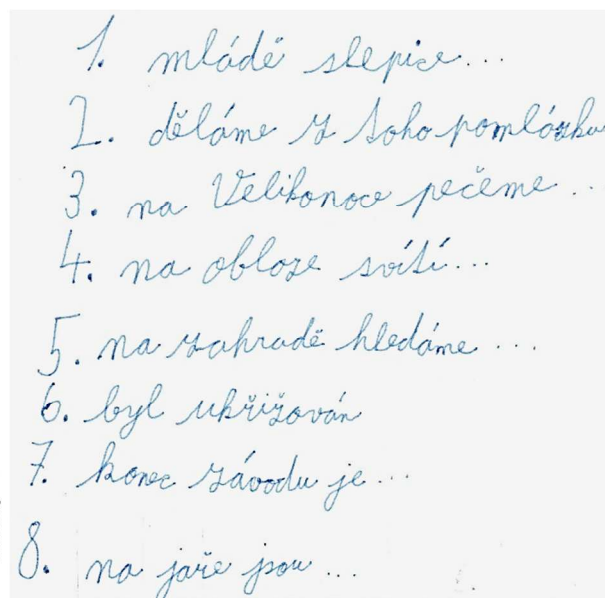 1. mládě slepice...
2. děláme z toho pomlázku
3. na Velikonoce pečeme...
4. na obloze svítí...
5. na zahradě hledáme...
6. byl ukřižován
7. konec závodu je...
8. na jaře jsou...